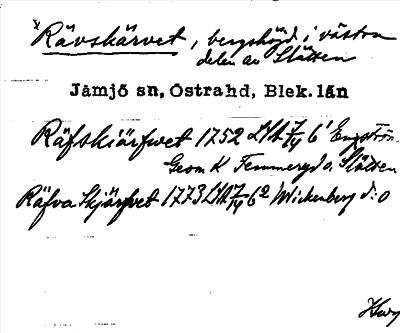 x Rävskärvet, bergshöjd i västra
delen av Slätten
Jämjö sn, Östrahd, Blek. län
Räfskiärfwet 1752 LSA 7/14 6¹ Engström
Geom K Temmeryd o. Slätten
Räfva Skjärfvet 1773 LSA 7/14 6² Wickenberg d:o